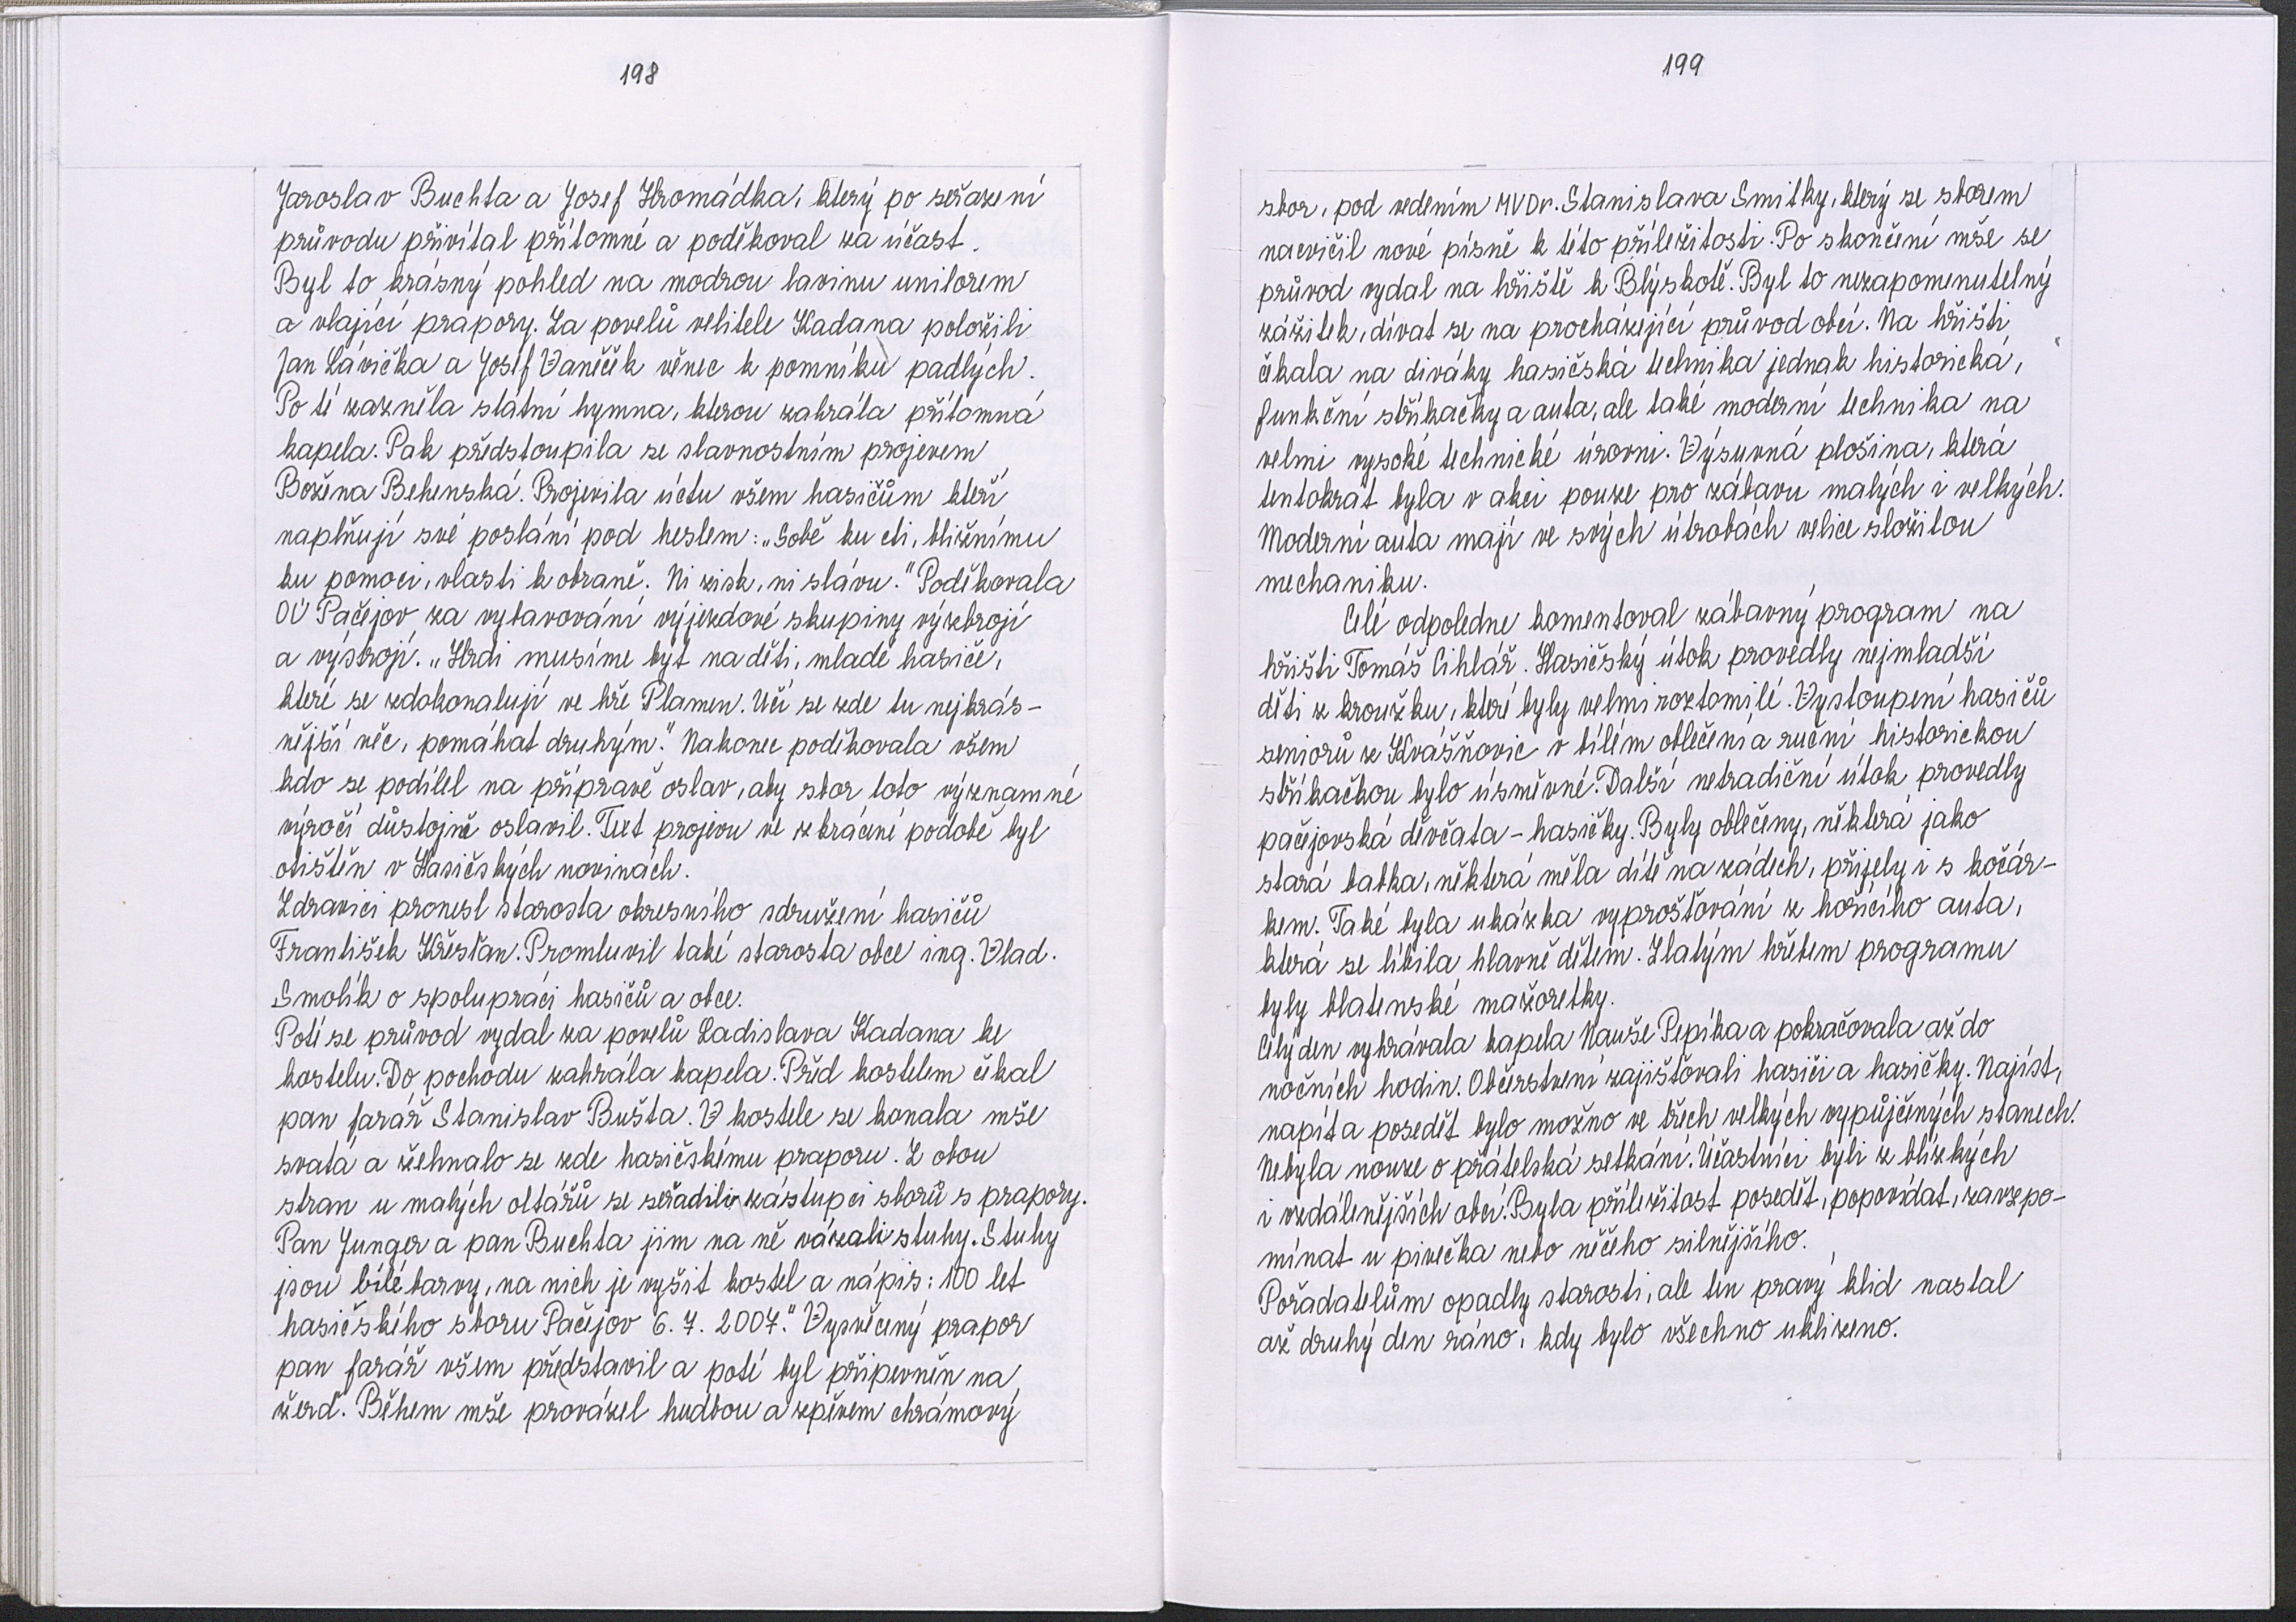 198
Jaroslav Buchta a Josef Hromádka, který po seřazení
průvodu přivítal přítomné a poděkoval za účast.
Byl to krásný pohled na modrou lavinu uniforem
a vlající prapory. Za povelů velitele Kadana položili
Jan Lávička a Josef Vaněček věnec k pomníku padlých.
Po té zazněla státní hymna, kterou zahrála přítomná
kapela. Pak předstoupila se slavnostním projevem
Božena Behenská. Projevila úctu všem hasičům kteří
naplňují své poslání pod heslem: „Sobě ku cti, bližnímu
ku pomoci, vlasti k obraně. Ni zisk, ni slávu." Poděkovala
OÚ Pačejov za vybavování výjezdové skupiny výzbrojí
a výstrojí. „Hrdi musíme být na děti, mladé hasiče,
které se zdokonalují ve hře Plamen. Učí se zde tu nejkrás-
nější věc, pomáhat druhým." Nakonec poděkovala všem
kdo se podílel na přípravě oslav, aby sbor toto významné
výročí důstojně oslavil. Text projevu ve zkrácené podobě byl
otištěn v Hasičských novinách.
Zdravici pronesl starosta okresního sdružení hasičů
František Křesťan. Promluvil také starosta obce ing. Vlad.
Smolík o spolupráci hasičů a obce.
Poté se průvod vydal za povelů Ladislava Kadana ke
kostelu. Do pochodu zahrála kapela. Před kostelem čekal
pan farář Stanislav Bušta. V kostele se konala mše
svatá a žehnalo se zde hasičskému praporu. Z obou
stran u malých oltářů se seřadili zástupci sborů s prapory.
Pan Junger a pan Buchta jim na ně vázali stuhy. Stuhy
jsou bílé barvy, na nich je vyšit kostel a nápis: 100 let
hasičského sboru Pačejov 6. 7. 2007." Vysvěcený prapor
pan farář všem představil a poté byl připevněn na
žerď. Během mše provázel hudbou a zpěvem chrámový
199
sbor, pod vedením MVDr. Stanislava Smitky, který se sborem
nacvičil nové písně k této příležitosti. Po skončení mše se
průvod vydal na hřiště k Blýskotě. Byl to nezapomenutelný
zážitek, dívat se na procházející průvod obcí. Na hřišti
čekala na diváky hasičská technika jednak historická,
funkční stříkačky a auta, ale také moderní technika na
velmi vysoké technické úrovni. Výsuvná plošina, která
tentokrát byla v akci pouze pro zábavu malých i velkých.
Moderní auta mají ve svých útrobách velice složitou
mechaniku.
Celé odpoledne komentoval zábavný program na
hřišti Tomáš Cihlář. Hasičský útok provedly nejmladší
děti z kroužku, které byly velmi roztomilé. Vystoupení hasičů
seniorů z Kvášňovic v bílém oblečení a ruční historickou
stříkačkou bylo úsměvné. Další netradiční útok provedly
pačejovská děvčata - hasičky. Byly oblečeny, některá jako
stará babka, některá měla dítě na zádech, přijely i s kočár-
kem. Také byla ukázka vyprošťování z hořícího auta,
která se líbila hlavně dětem. Zlatým hřebem programu
byly blatenské mažoretky.
Celý den vyhrávala kapela Nauše Pepíka a pokračovala až do
nočních hodin. Občerstvení zajišťovali hasiči a hasičky. Najíst,
napít a posedět bylo možno ve třech velkých vypůjčených stanech.
Nebyla nouze o přátelská setkání. Účastníci byli z blízkých
i vzdálenějších obcí. Byla příležitost posedět, popovídat, zavzpo-
mínat u pivečka nebo něčeho silnějšího.
Pořadatelům opadly starosti, ale ten pravý klid nastal
až druhý den ráno, kdy bylo všechno uklizeno.